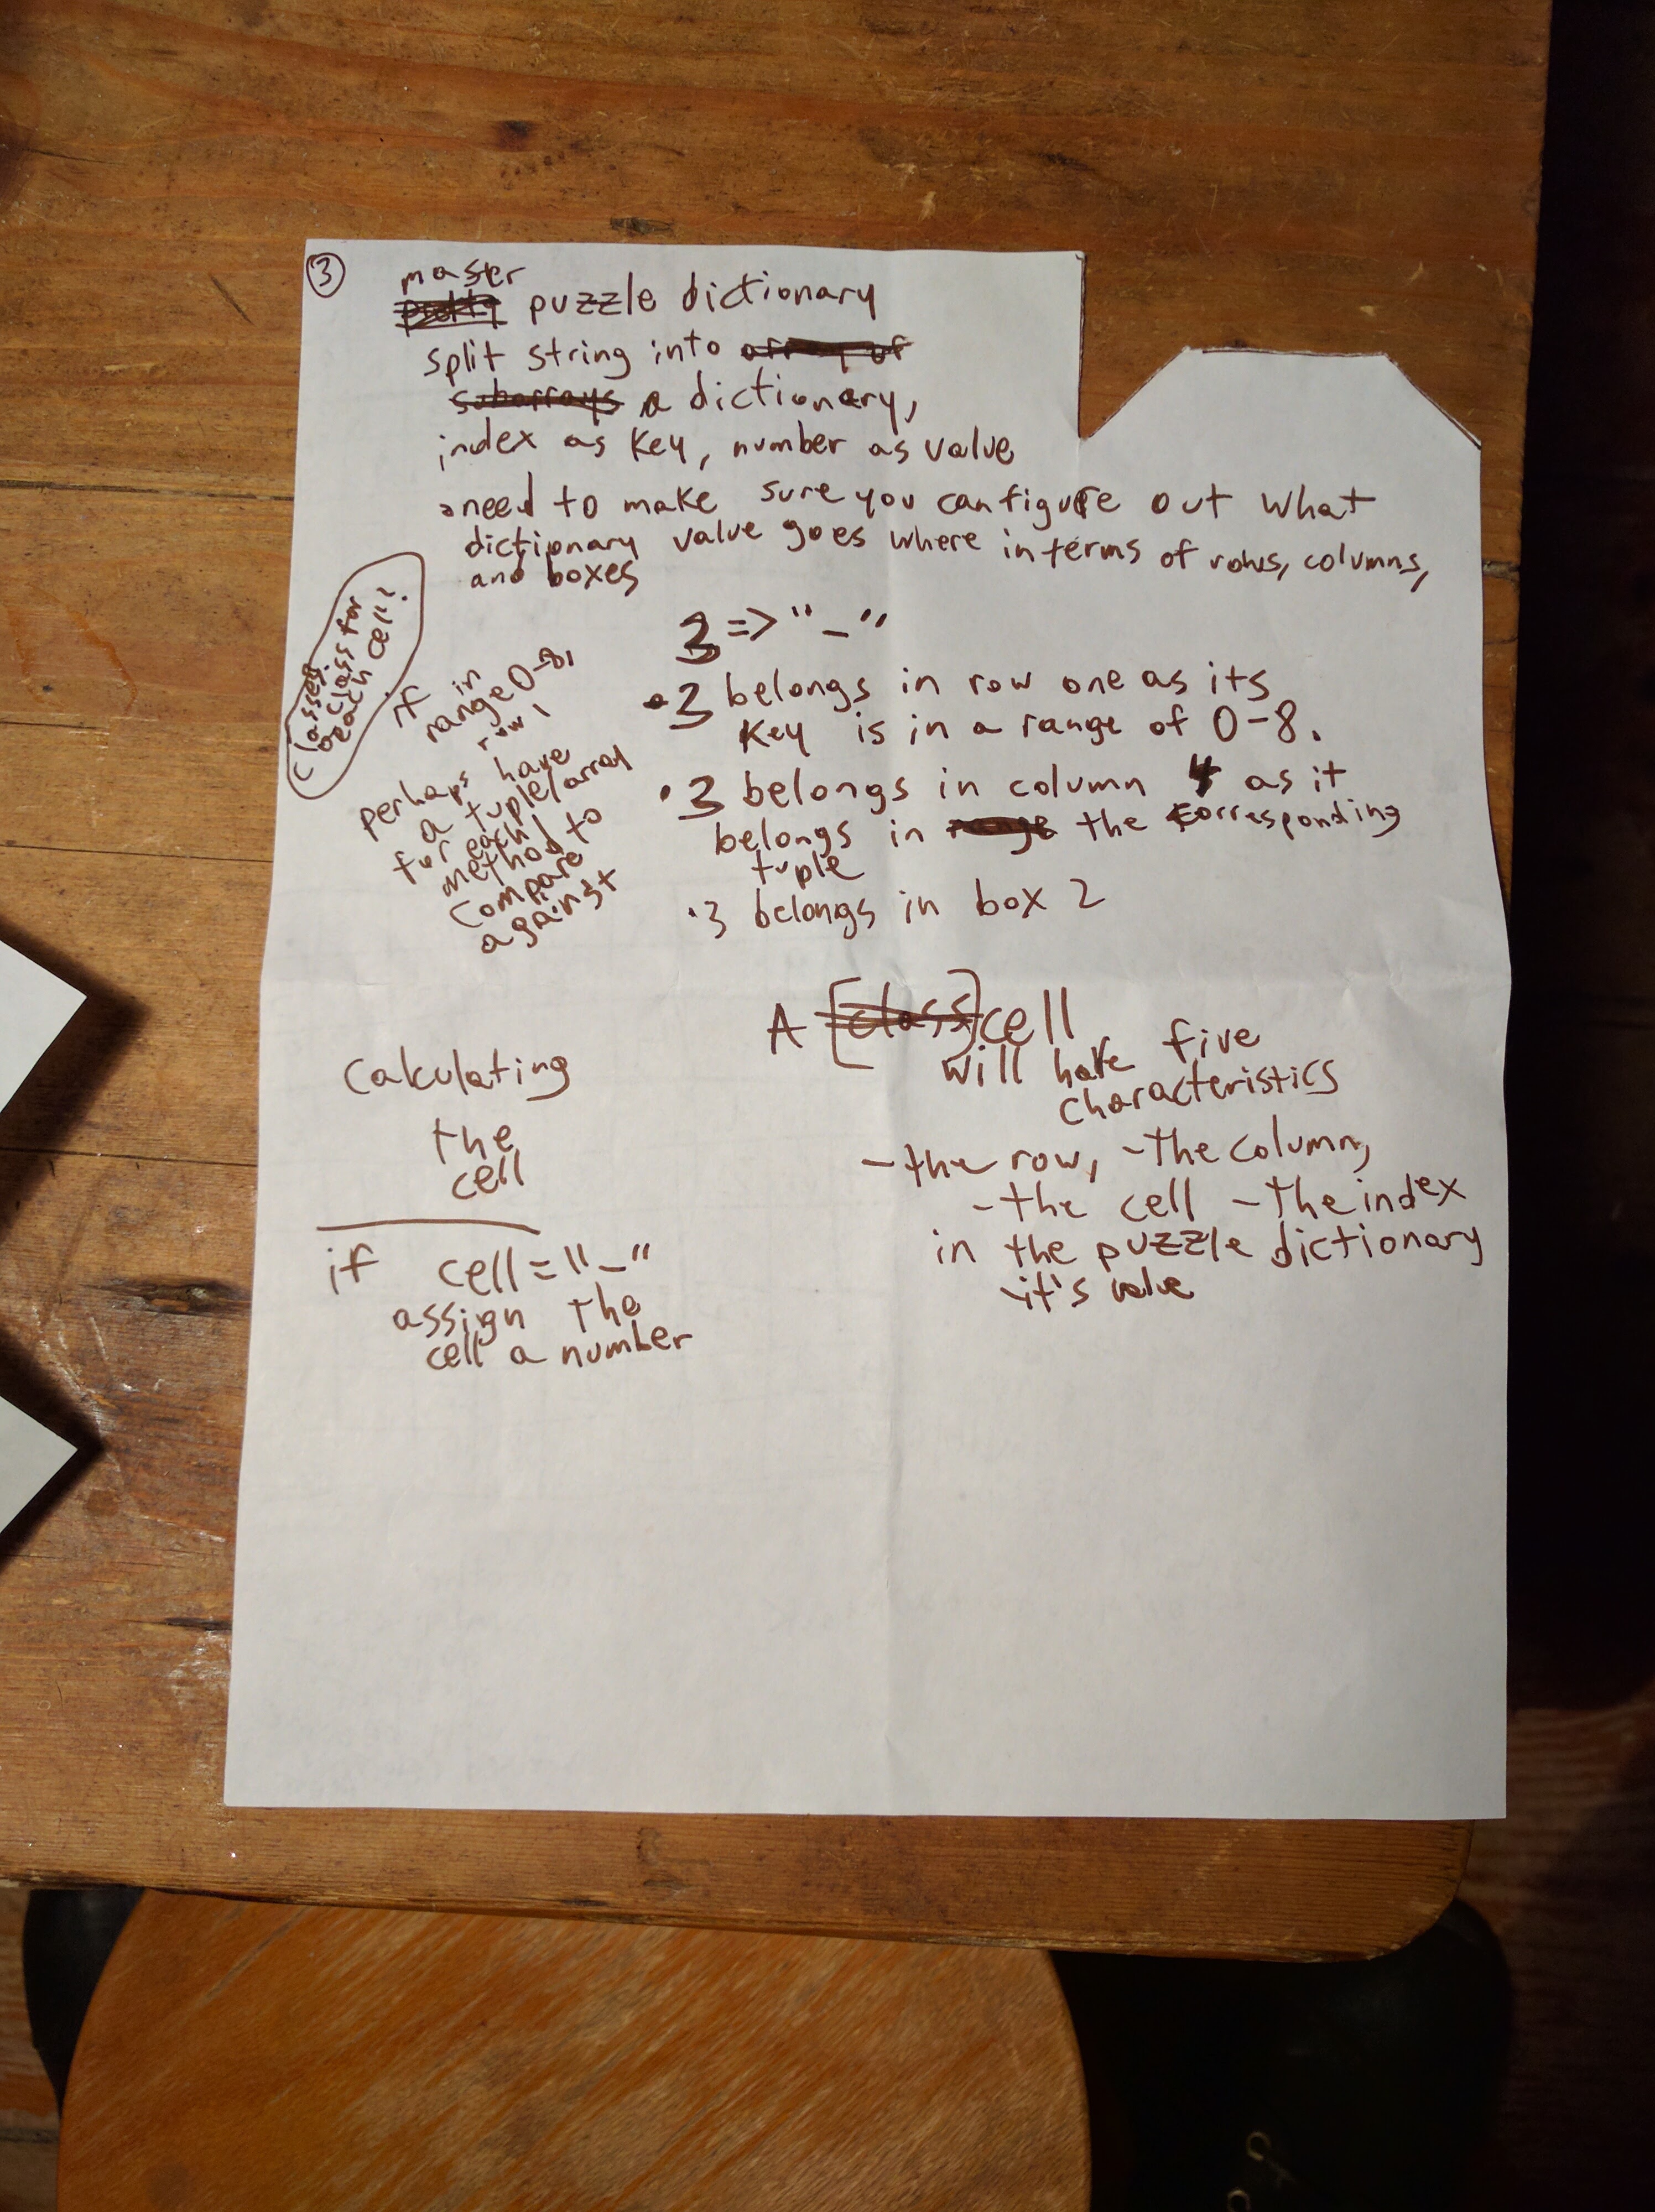 3
master
puzzle dictionary
split string into array of
subarrays a dictionary,
index as key, number as value
need to make sure you can figure out what
dictionary value goes where in terms of rows, columns,
and boxes
classes.
class for
each cell?
3 => "_"
if in
range 0-8,
row 1
perhaps have
a tuple/array
for each
method to
compare
against
• 3 belongs in row one as its
key is in a range of 0-8.
• 3 belongs in column 4 as it
belongs in range the corresponding
tuple
• 3 belongs in box 2
A [class] cell
will have five
characteristics
- the row, - the column,
- the cell - the index
in the puzzle dictionary
- it's value
Calculating
the
cell
if cell = "_"
assign the
cell a number